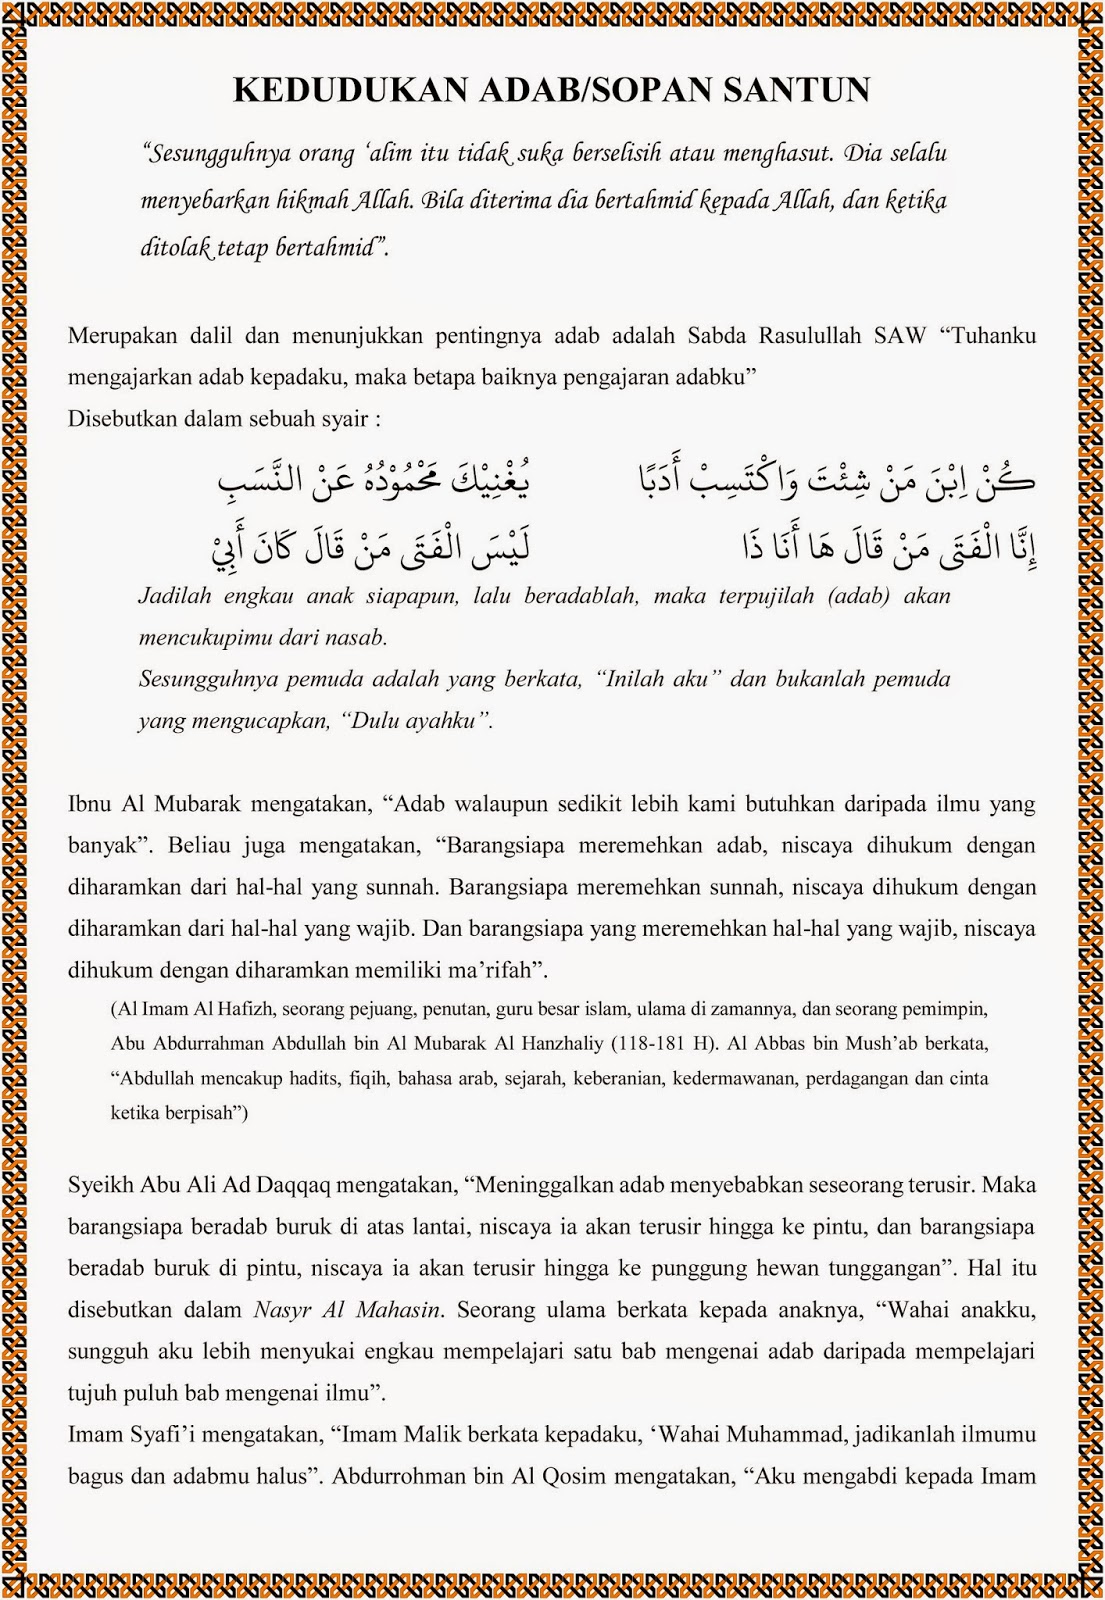 KEDUDUKAN ADAB/SOPAN SANTUN
“Sesungguhnya orang ‘alim itu tidak suka berselisih atau menghasut. Dia selalu
menyebarkan hikmah Allah. Bila diterima dia bertahmid kepada Allah, dan ketika
ditolak tetap bertahmid”.
Merupakan dalil dan menunjukkan pentingnya adab adalah Sabda Rasulullah SAW “Tuhanku
mengajarkan adab kepadaku, maka betapa baiknya pengajaran adabku”
Disebutkan dalam sebuah syair :
كُنْ اِبْنَ مَنْ شِئْتَ وَاكْتَسِبْ أَدَبًا يُغْنِيْكَ مَحْمُوْدُهُ عَنْ النَّسَبِ
إِنَّا الْفَتَى مَنْ قَالَ هَا أَنَا ذَا لَيْسَ الْفَتَى مَنْ قَالَ كَانَ أَبِيْ
Jadilah engkau anak siapapun, lalu beradablah, maka terpujilah (adab) akan
mencukupimu dari nasab.
Sesungguhnya pemuda adalah yang berkata, “Inilah aku” dan bukanlah pemuda
yang mengucapkan, “Dulu ayahku”.
Ibnu Al Mubarak mengatakan, “Adab walaupun sedikit lebih kami butuhkan daripada ilmu yang
banyak”. Beliau juga mengatakan, “Barangsiapa meremehkan adab, niscaya dihukum dengan
diharamkan dari hal-hal yang sunnah. Barangsiapa meremehkan sunnah, niscaya dihukum dengan
diharamkan dari hal-hal yang wajib. Dan barangsiapa yang meremehkan hal-hal yang wajib, niscaya
dihukum dengan diharamkan memiliki ma’rifah”.
(Al Imam Al Hafizh, seorang pejuang, penutan, guru besar islam, ulama di zamannya, dan seorang pemimpin,
Abu Abdurrahman Abdullah bin Al Mubarak Al Hanzhaliy (118-181 H). Al Abbas bin Mush’ab berkata,
“Abdullah mencakup hadits, fiqih, bahasa arab, sejarah, keberanian, kedermawanan, perdagangan dan cinta
ketika berpisah”)
Syeikh Abu Ali Ad Daqqaq mengatakan, “Meninggalkan adab menyebabkan seseorang terusir. Maka
barangsiapa beradab buruk di atas lantai, niscaya ia akan terusir hingga ke pintu, dan barangsiapa
beradab buruk di pintu, niscaya ia akan terusir hingga ke punggung hewan tunggangan”. Hal itu
disebutkan dalam Nasyr Al Mahasin. Seorang ulama berkata kepada anaknya, “Wahai anakku,
sungguh aku lebih menyukai engkau mempelajari satu bab mengenai adab daripada mempelajari
tujuh puluh bab mengenai ilmu”.
Imam Syafi’i mengatakan, “Imam Malik berkata kepadaku, ‘Wahai Muhammad, jadikanlah ilmumu
bagus dan adabmu halus”. Abdurrohman bin Al Qosim mengatakan, “Aku mengabdi kepada Imam